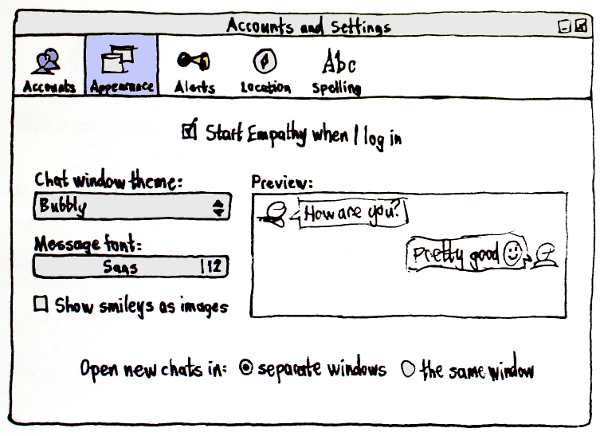 Accounts and Settings
Accounts Appearance Alerts Location Spelling
Abc
Start Empathy when I log in
Chat window theme:
Bubbly
Message font:
Sans 12
Show smileys as images
Preview:
How are you?
Pretty good
Open new chats in: separate windows the same window